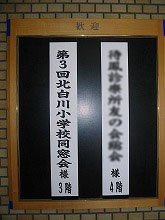 歓迎
第3回北白川小学校同窓会様
3階
待鳳診療所友の会総会様
4階